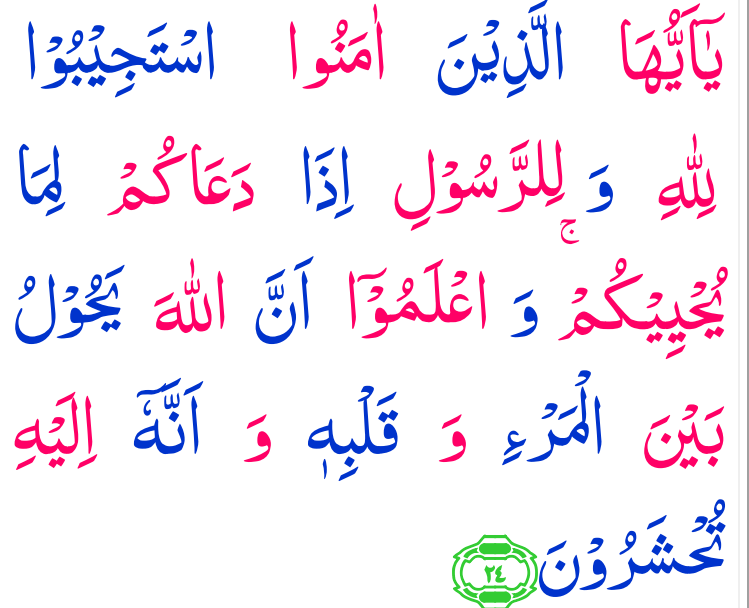 يٰۤاَيُّهَا الَّذِيْنَ اٰمَنُوا اسْتَجِيْبُوْا
لِلّٰهِ وَ لِلرَّسُوْلِ اِذَا دَعَاكُمْ لِمَا
يُحْيِيْكُمْ ۚ وَ اعْلَمُوْۤا اَنَّ اللّٰهَ يَحُوْلُ
بَيْنَ الْمَرْءِ وَ قَلْبِهٖ وَ اَنَّهٗۤ اِلَيْهِ
تُحْشَرُوْنَ ٢٤